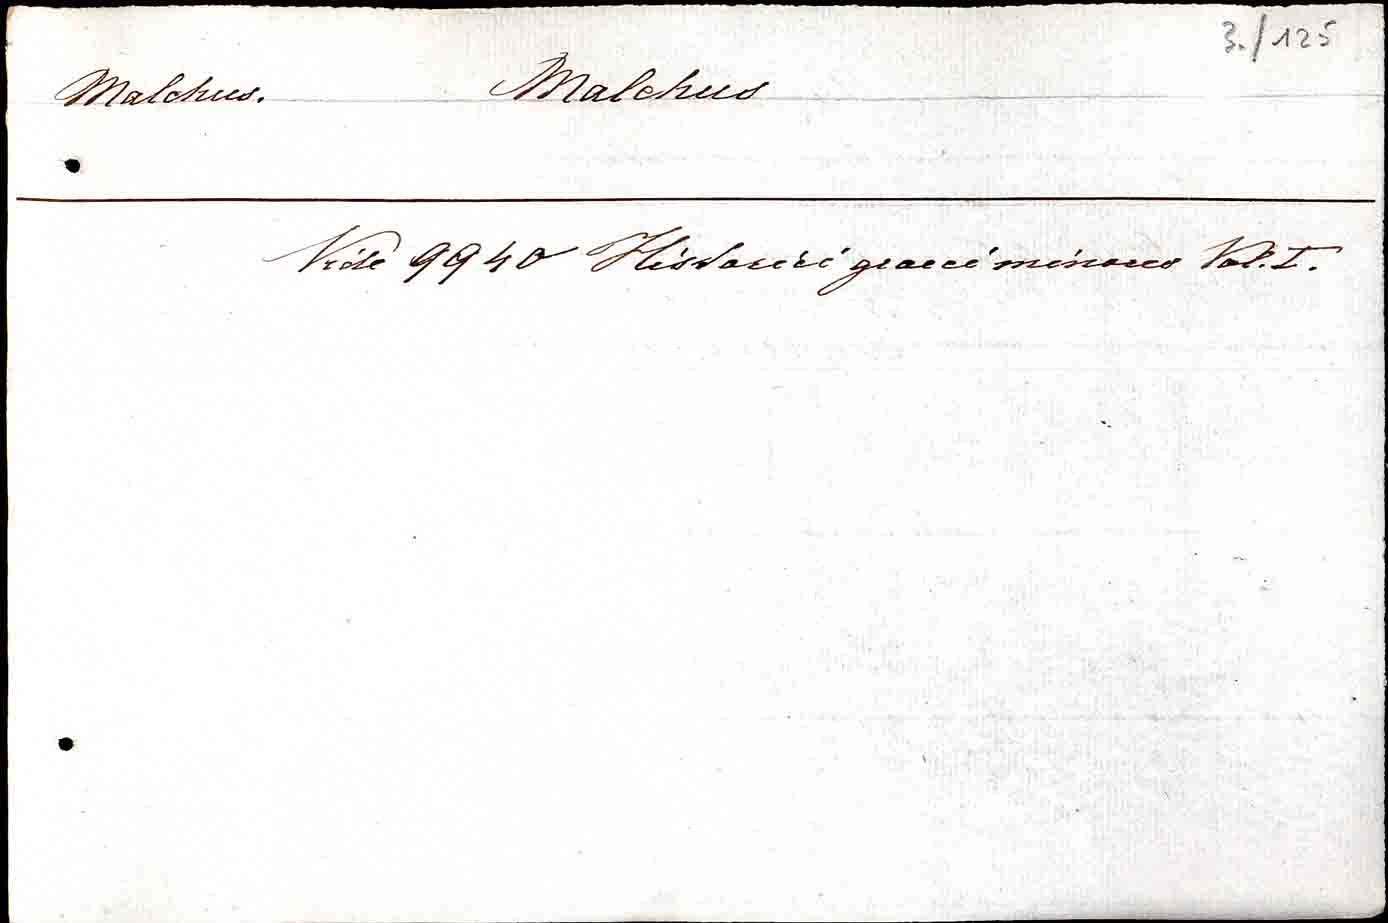 3./125
Malchus. Malchus
Vide 9940 Historici graeci minores Vol. I.